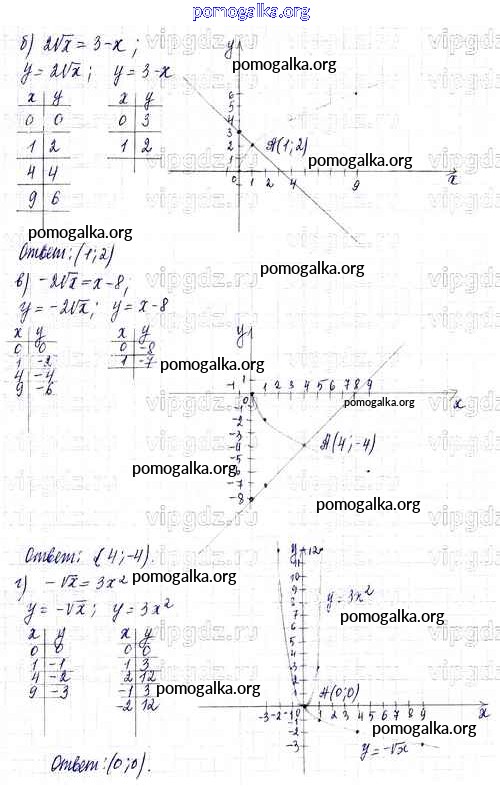 pomogalka.org
б) 2√x = 3-x;
y = 2√x; y = 3-x
pomogalka.org
x y x y
0 0 0 3
1 2 1 2
4 4
9 6
y
6
5
4
3
2
1
0 1 2 4 9
x
A(1;2)
pomogalka.org
pomogalka.org
Ответ: (1;2)
pomogalka.org
в) -2√x = x-8;
y = -2√x; y = x-8
x y x y
0 0 0 -8
1 -2 1 -7
4 -4
9 -6
pomogalka.org
y
-1 1 2 3 4 5 6 7 8 9
0
x
-1
-2
-3
-4
-5
-6
-7
-8
pomogalka.org
A(4;-4)
pomogalka.org
pomogalka.org
Ответ: (4;-4).
г) -√x = 3x²
pomogalka.org
y = -√x; y = 3x²
x y x y
0 0 0 0
1 -1 1 3
4 -2 2 12
9 -3 -1 3
-2 12
pomogalka.org
y
12
11
10
9
8
7
6
5
4
3
2
1
y = 3x²
pomogalka.org
A(0;0)
-3 -2 -1 0 1 2 3 4 5 6 7 8 9
x
-1
-2
-3
pomogalka.org
y = -√x
Ответ: (0;0).
vipgdz.ru